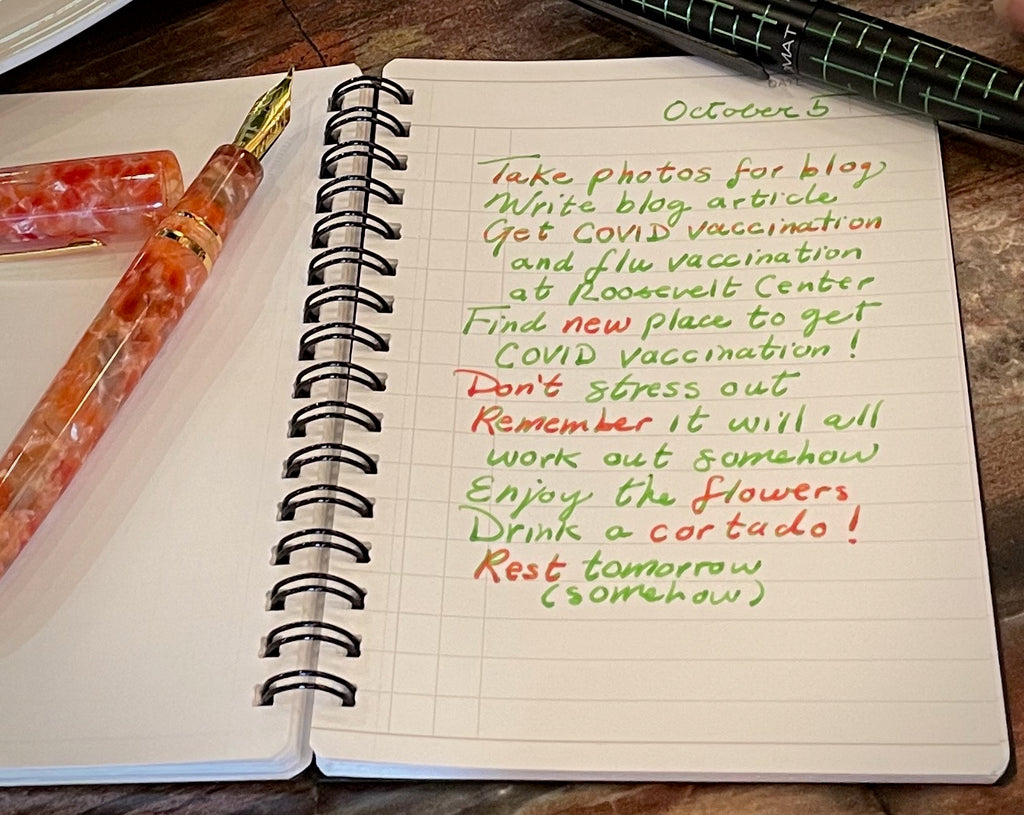 October 5
Take photos for blog
Write blog article
Get COVID vaccination
and flu vaccination
at Roosevelt Center
Find new place to get
COVID vaccination!
Don't stress out
Remember it will all
work out somehow
Enjoy the flowers
Drink a cortado!
Rest tomorrow
(somehow)